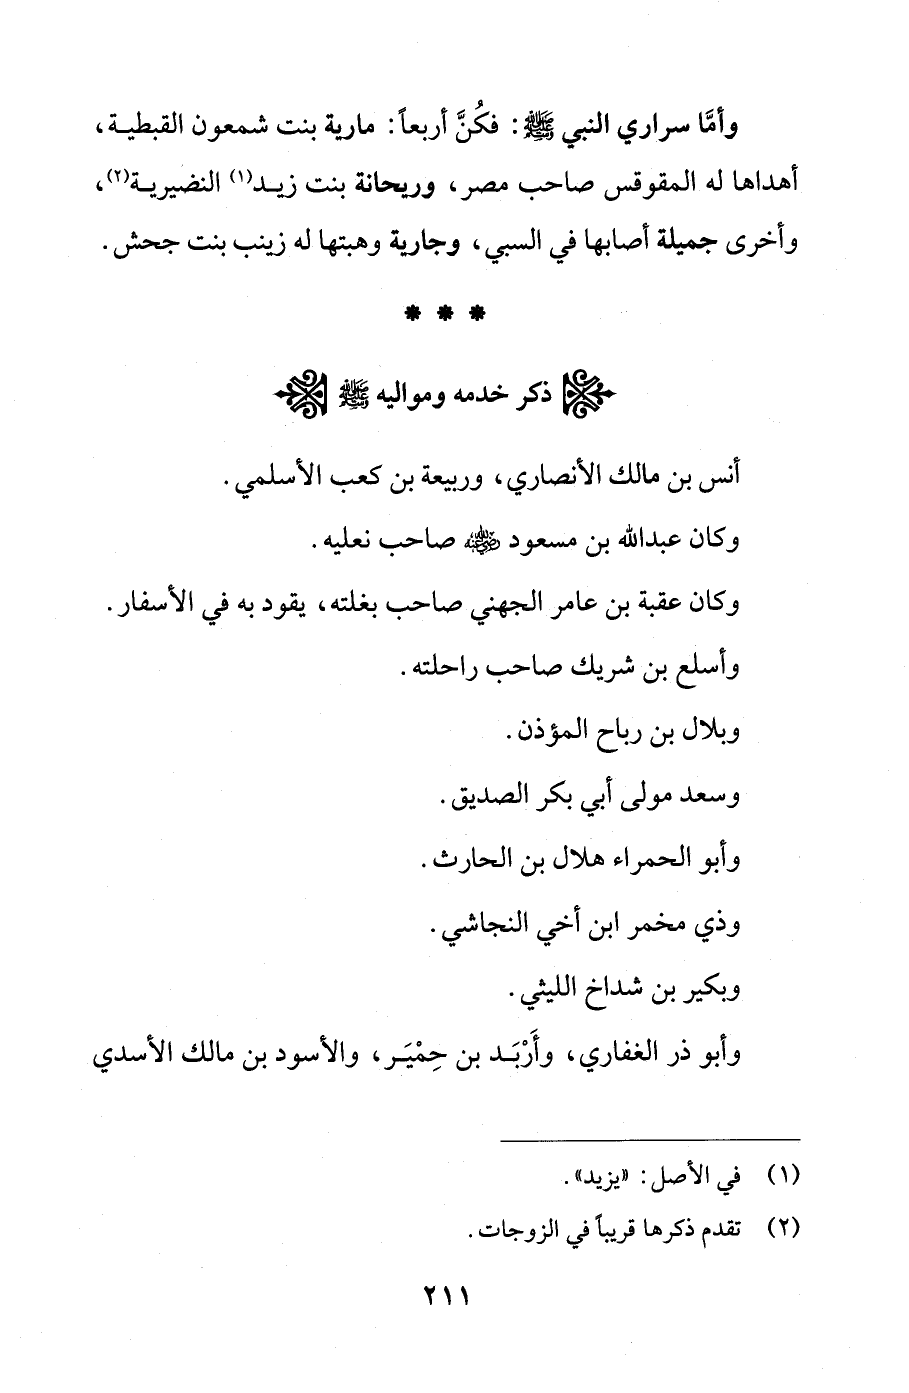 وأمَّا سراري النبي ﷺ: فكُنَّ أربعاً: مارية بنت شمعون القبطية،
أهداها له المقوقس صاحب مصر، وريحانة بنت زيد(١) النضيرية(٢)،
وأخرى جميلة أصابها في السبي، وجارية وهبتها له زينب بنت جحش.
* * *
ذكر خدمه ومواليه ﷺ
أنس بن مالك الأنصاري، وربيعة بن كعب الأسلمي.
وكان عبدالله بن مسعود رضي الله عنه صاحب نعليه.
وكان عقبة بن عامر الجهني صاحب بغلته، يقود به في الأسفار.
وأسلع بن شريك صاحب راحلته.
وبلال بن رباح المؤذن.
وسعد مولى أبي بكر الصديق.
وأبو الحمراء هلال بن الحارث.
وذي مخمر ابن أخي النجاشي.
وبكير بن شداخ الليثي.
وأبو ذر الغفاري، وأَرْبَد بن حِمْيَر، والأسود بن مالك الأسدي
(١) في الأصل: «يزيد».
(٢) تقدم ذكرها قريباً في الزوجات.
٢١١